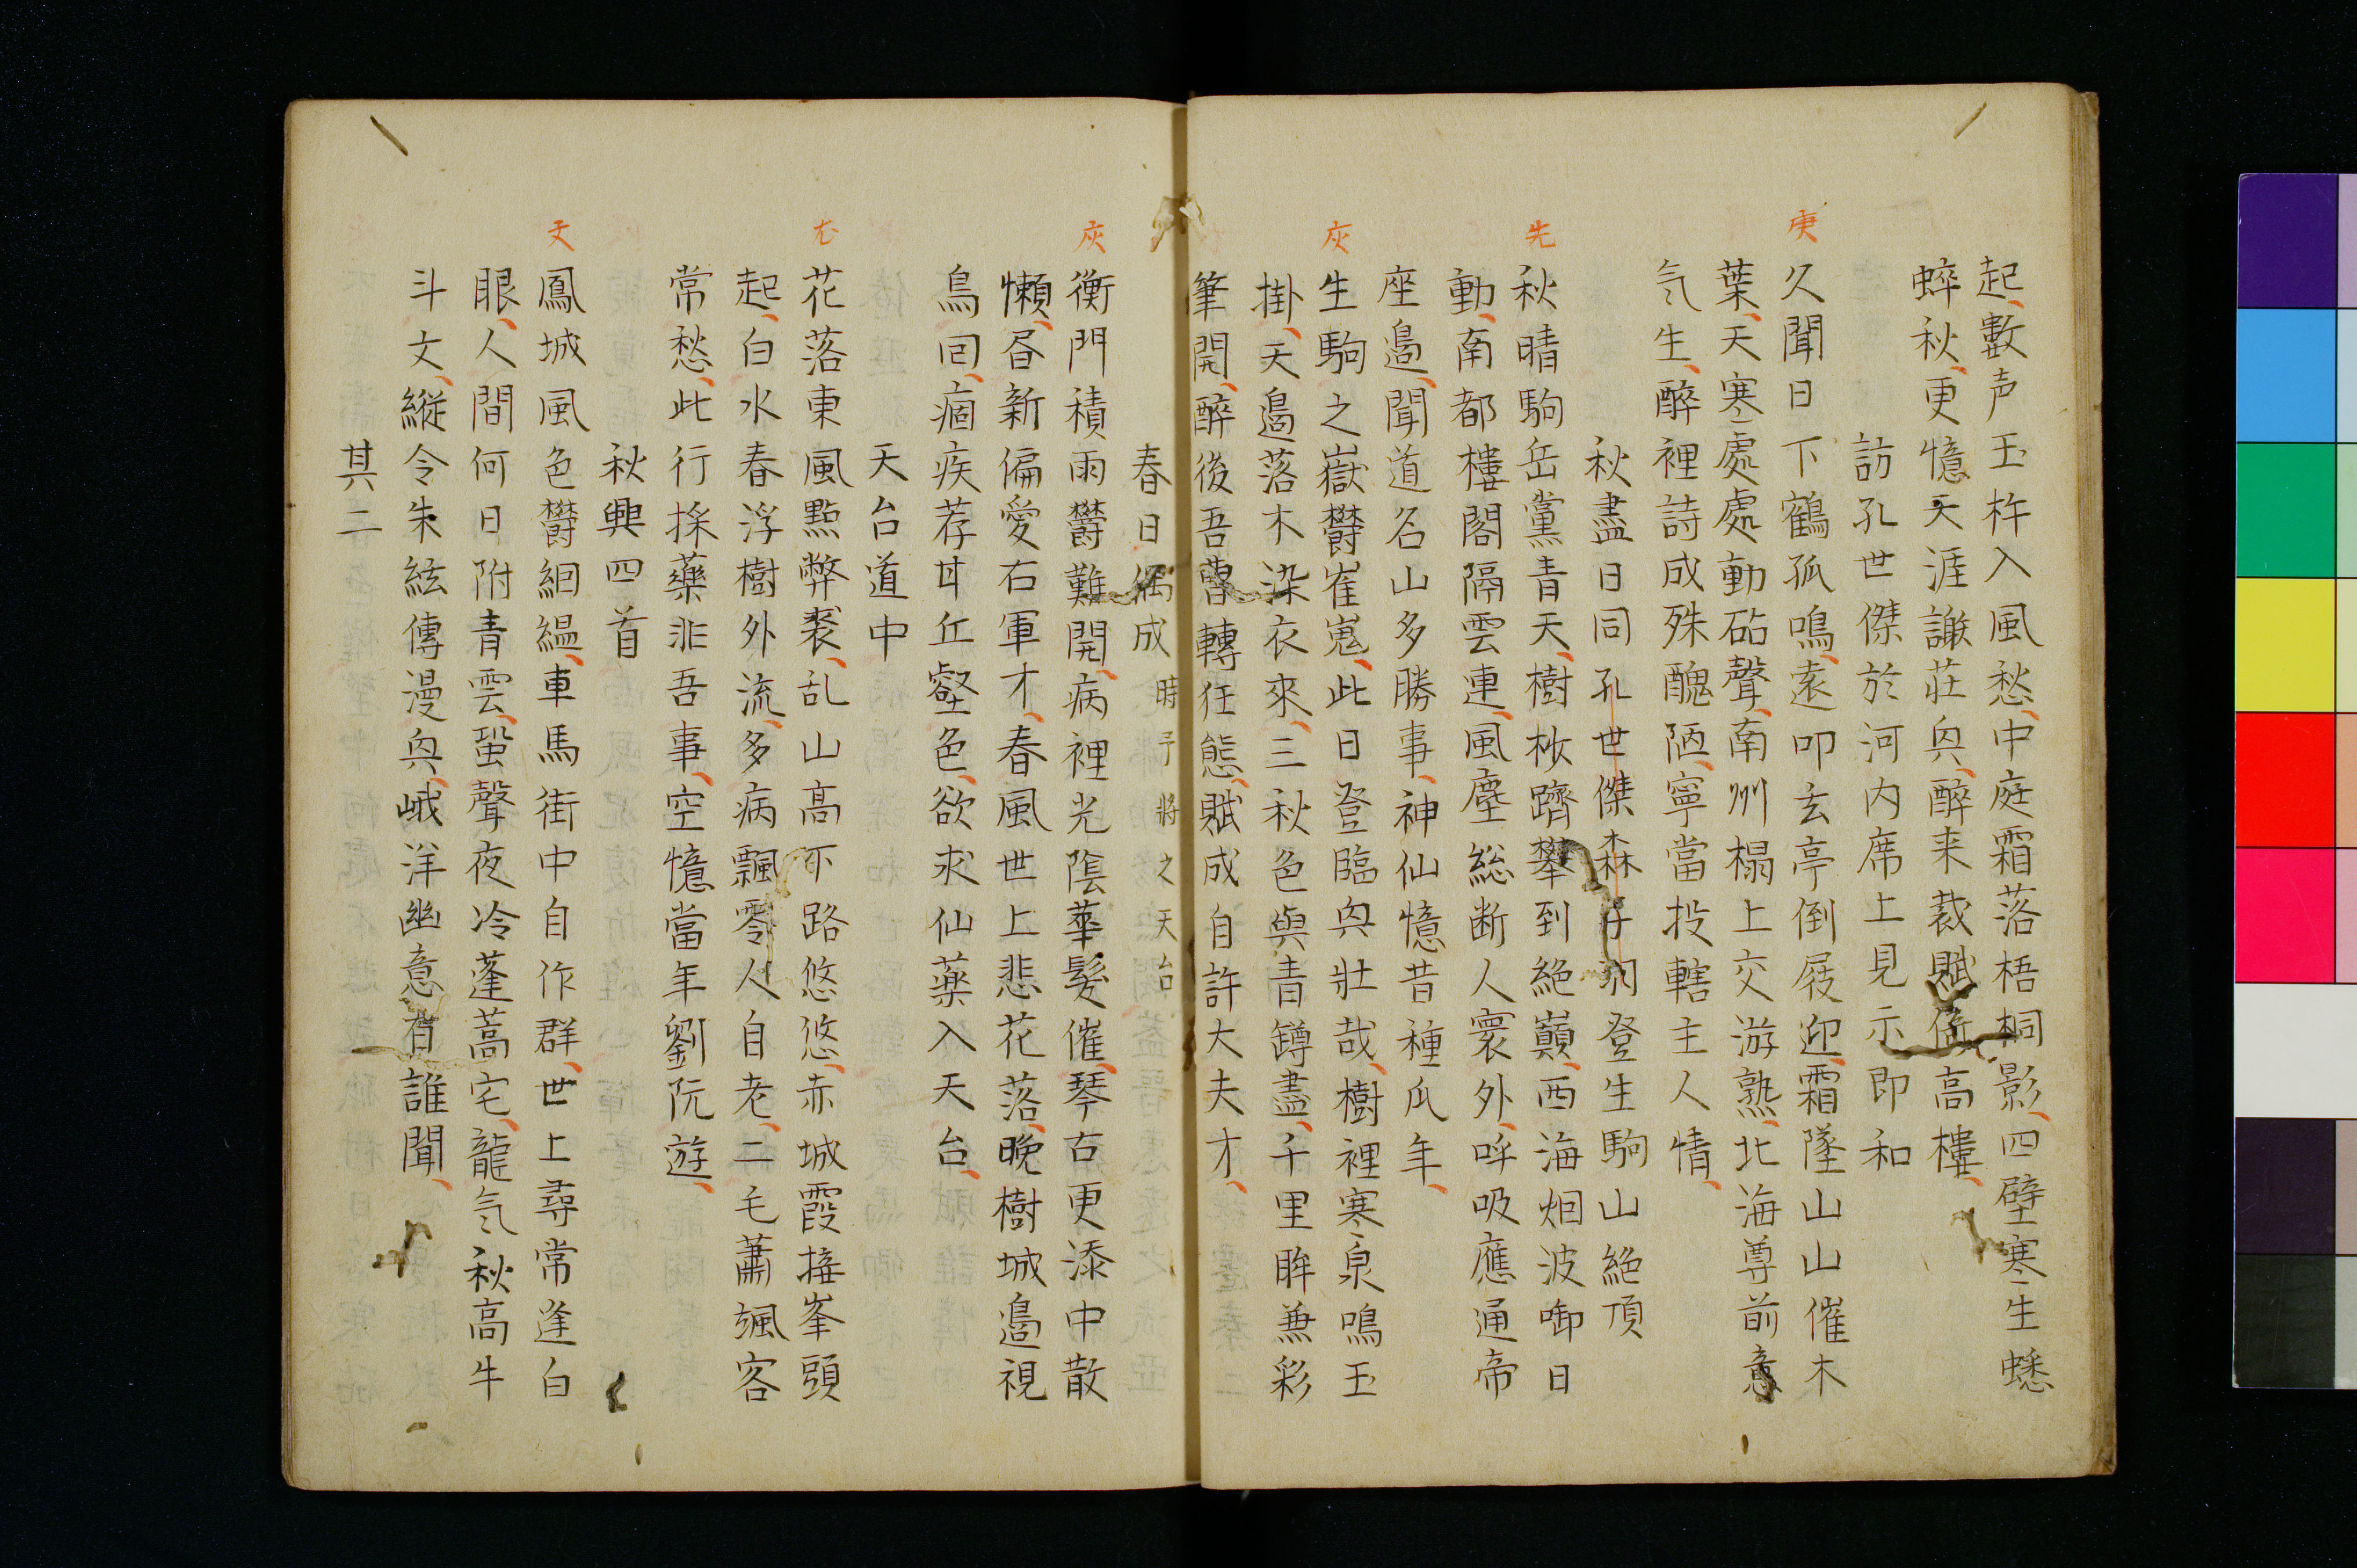 起、數声玉杵入風愁、中庭霜落梧桐影、四壁寒生蟋
蟀秋、更憶天涯謝莊興、醉来裁賦倚高樓、
訪孔世傑於河内席上見示即和
庚
久聞日下鶴孤鳴、遠叩玄亭倒屐迎、霜墜山山催木
葉、天寒處處動砧聲、南州榻上交游熟、北海尊前意
气生、醉裡詩成殊醜陋、寧當投轄主人情、
秋盡日同孔世傑森子羽登生駒山絶頂
先
秋晴駒岳黨青天、樹杪躋攀到絶巔、西海烟波啣日
動、南都樓閣隔雲連、風塵総断人寰外、呼吸應通帝
座邉、聞道名山多勝事、神仙憶昔種瓜年、
灰
生駒之嶽欝崔嵬、此日登臨興壮哉、樹裡寒泉鳴玉
掛、天邉落木染衣來、三秋色與青罇盡、千里眸兼彩
筆開、醉後吾曹轉狂態、賦成自許大夫才、
春日偶成 時予将之天台
灰
衡門積雨欝難開、病裡光陰華髪催、琴古更添中散
懶、昼新偏愛右軍才、春風世上悲花落、晩樹城邉視
鳥囘、痼疾荐甘丘壑色、欲求仙薬入天台、
天台道中
尤
花落東風點弊裘、乱山高下路悠悠、赤城霞接峯頭
起、白水春浮樹外流、多病飄零人自老、二毛蕭颯客
常愁、此行採藥非吾事、空憶當年劉阮遊、
秋興四首
文
鳳城風色欝絪縕、車馬街中自作群、世上尋常逢白
眼、人間何日附青雲、蛩聲夜冷蓬蒿宅、龍气秋高牛
斗文、縦令朱絃傳漫興、峨洋幽意有誰聞、
其二